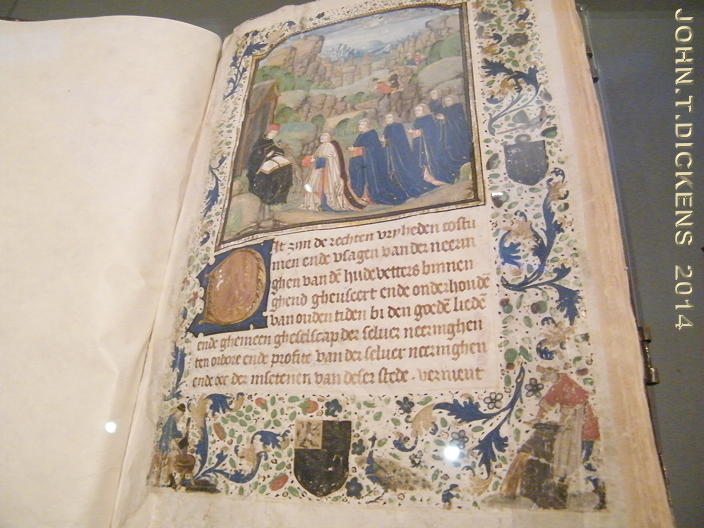 Dit zijn de rechten vryheden costu
men ende vsagen van der neerin
ghen van dē hudevetters binnen
ghend gheuseert ende onderhoudē
van ouden tiden bi den goedē liedē
ende ghemeen gheselscap der selver neeringhen
ten orbore ende profite van der selver neeringhen
ende ooc der insetenen van deser stede . vermeut
JOHN.T.DICKENS 2014